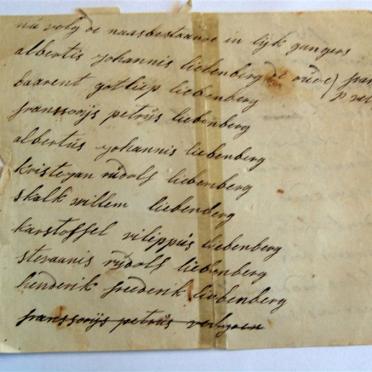 nu volg de naasbestaande in lyk gangers
albertis johannis liebenberg de oude)
baarent gotliep liebenberg
franssoys petrus liebenberg
albertus johannis liebenberg
kristeyan rudolf liebenberg
skalk willem liebenberg
karstoffel vilippus liebenberg
stevaanis rudolf liebenberg
henderik frederik liebenberg
franssoys petrus